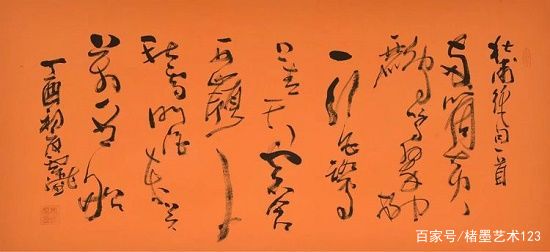 杜甫绝句一首
两箇黄
鸝鳴翠柳
一行白鷺
上青天窗含
西嶺千
秋雪門泊東吴
萬里船
丁酉初夏
百家号/楮墨艺术123